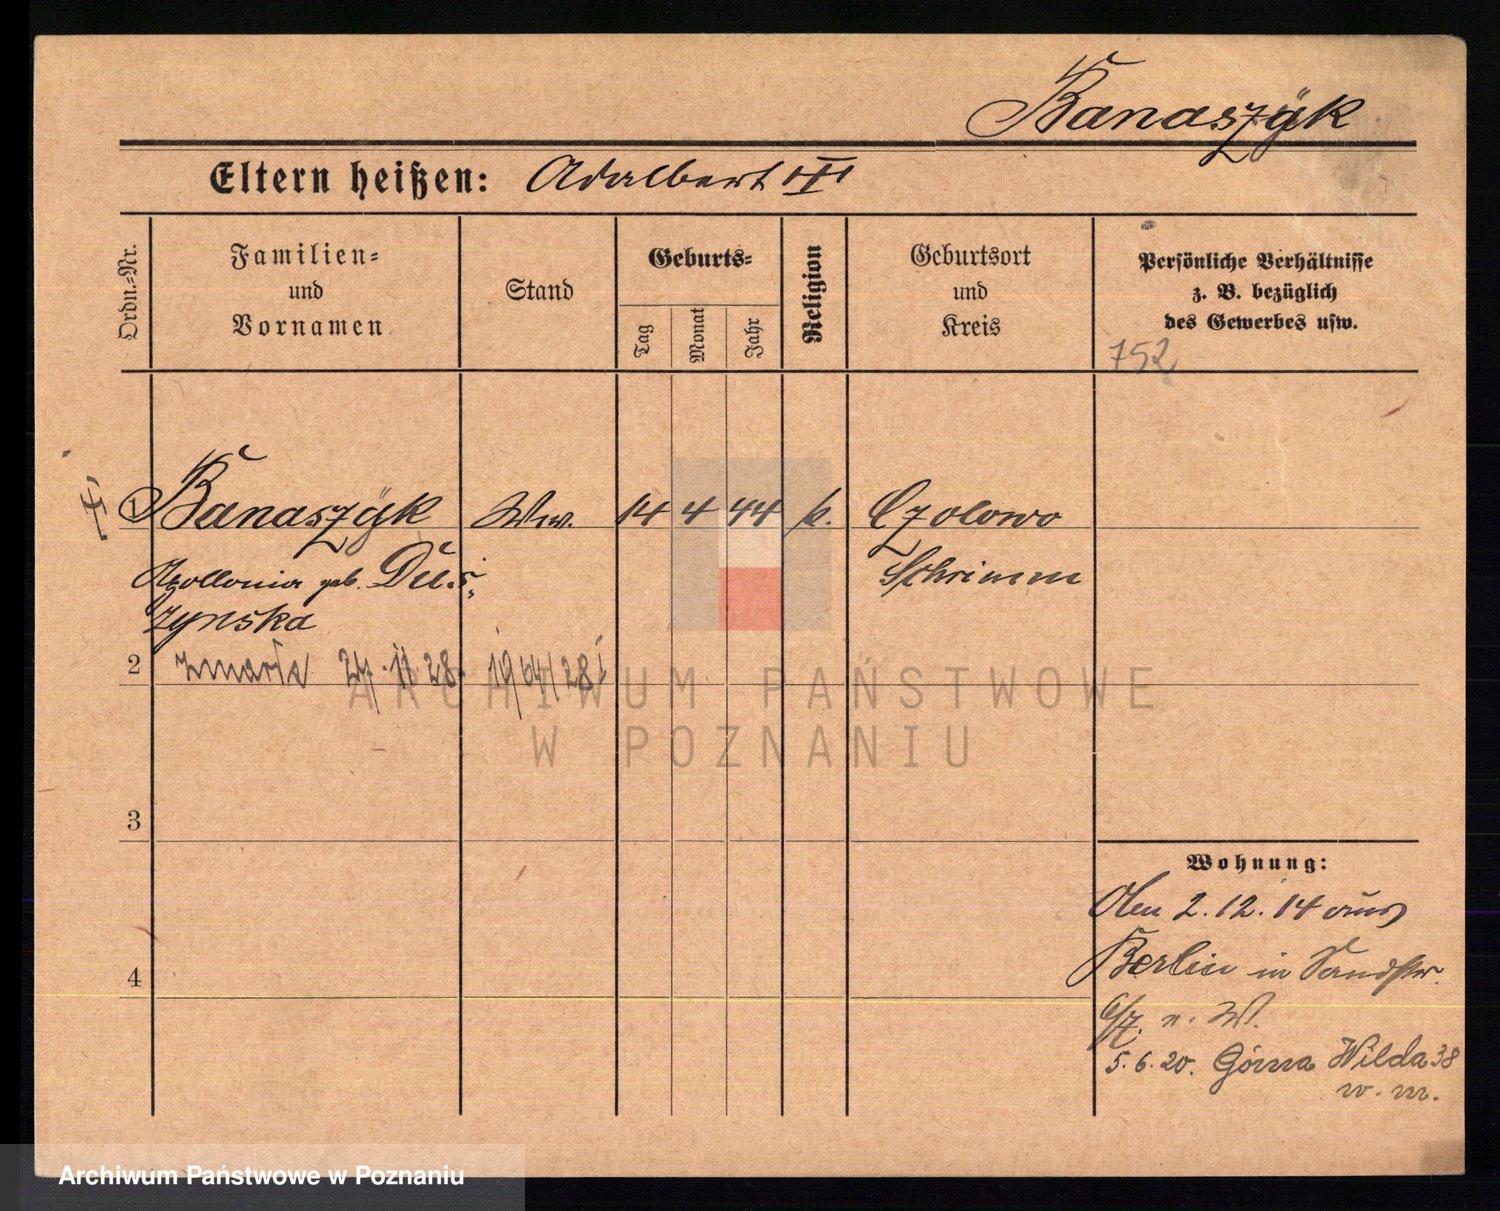 Banaszÿk
Eltern heißen: Adalbert III
Ordn.-Nr.
Familien- und Vornamen
Stand
Geburts-
Tag
Monat
Jahr
Religion
Geburtsort und Kreis
Persönliche Verhältnisse
z. B. bezüglich
des Gewerbes usw.
752
1 Banaszÿk Ww. 14 4 44 k. Czolowo
Apollonia geb. Dus- Schrimm
zynska
2 zmarła 27.11.28. 1964/28
3
4
Wohnung:
2.12.14 aus
Berlin in Sandstr.
n. W.
5.6.20. Górna Wilda 38
w. m.
ARCHIWUM PAŃSTWOWE
W POZNANIU
Archiwum Państwowe w Poznaniu